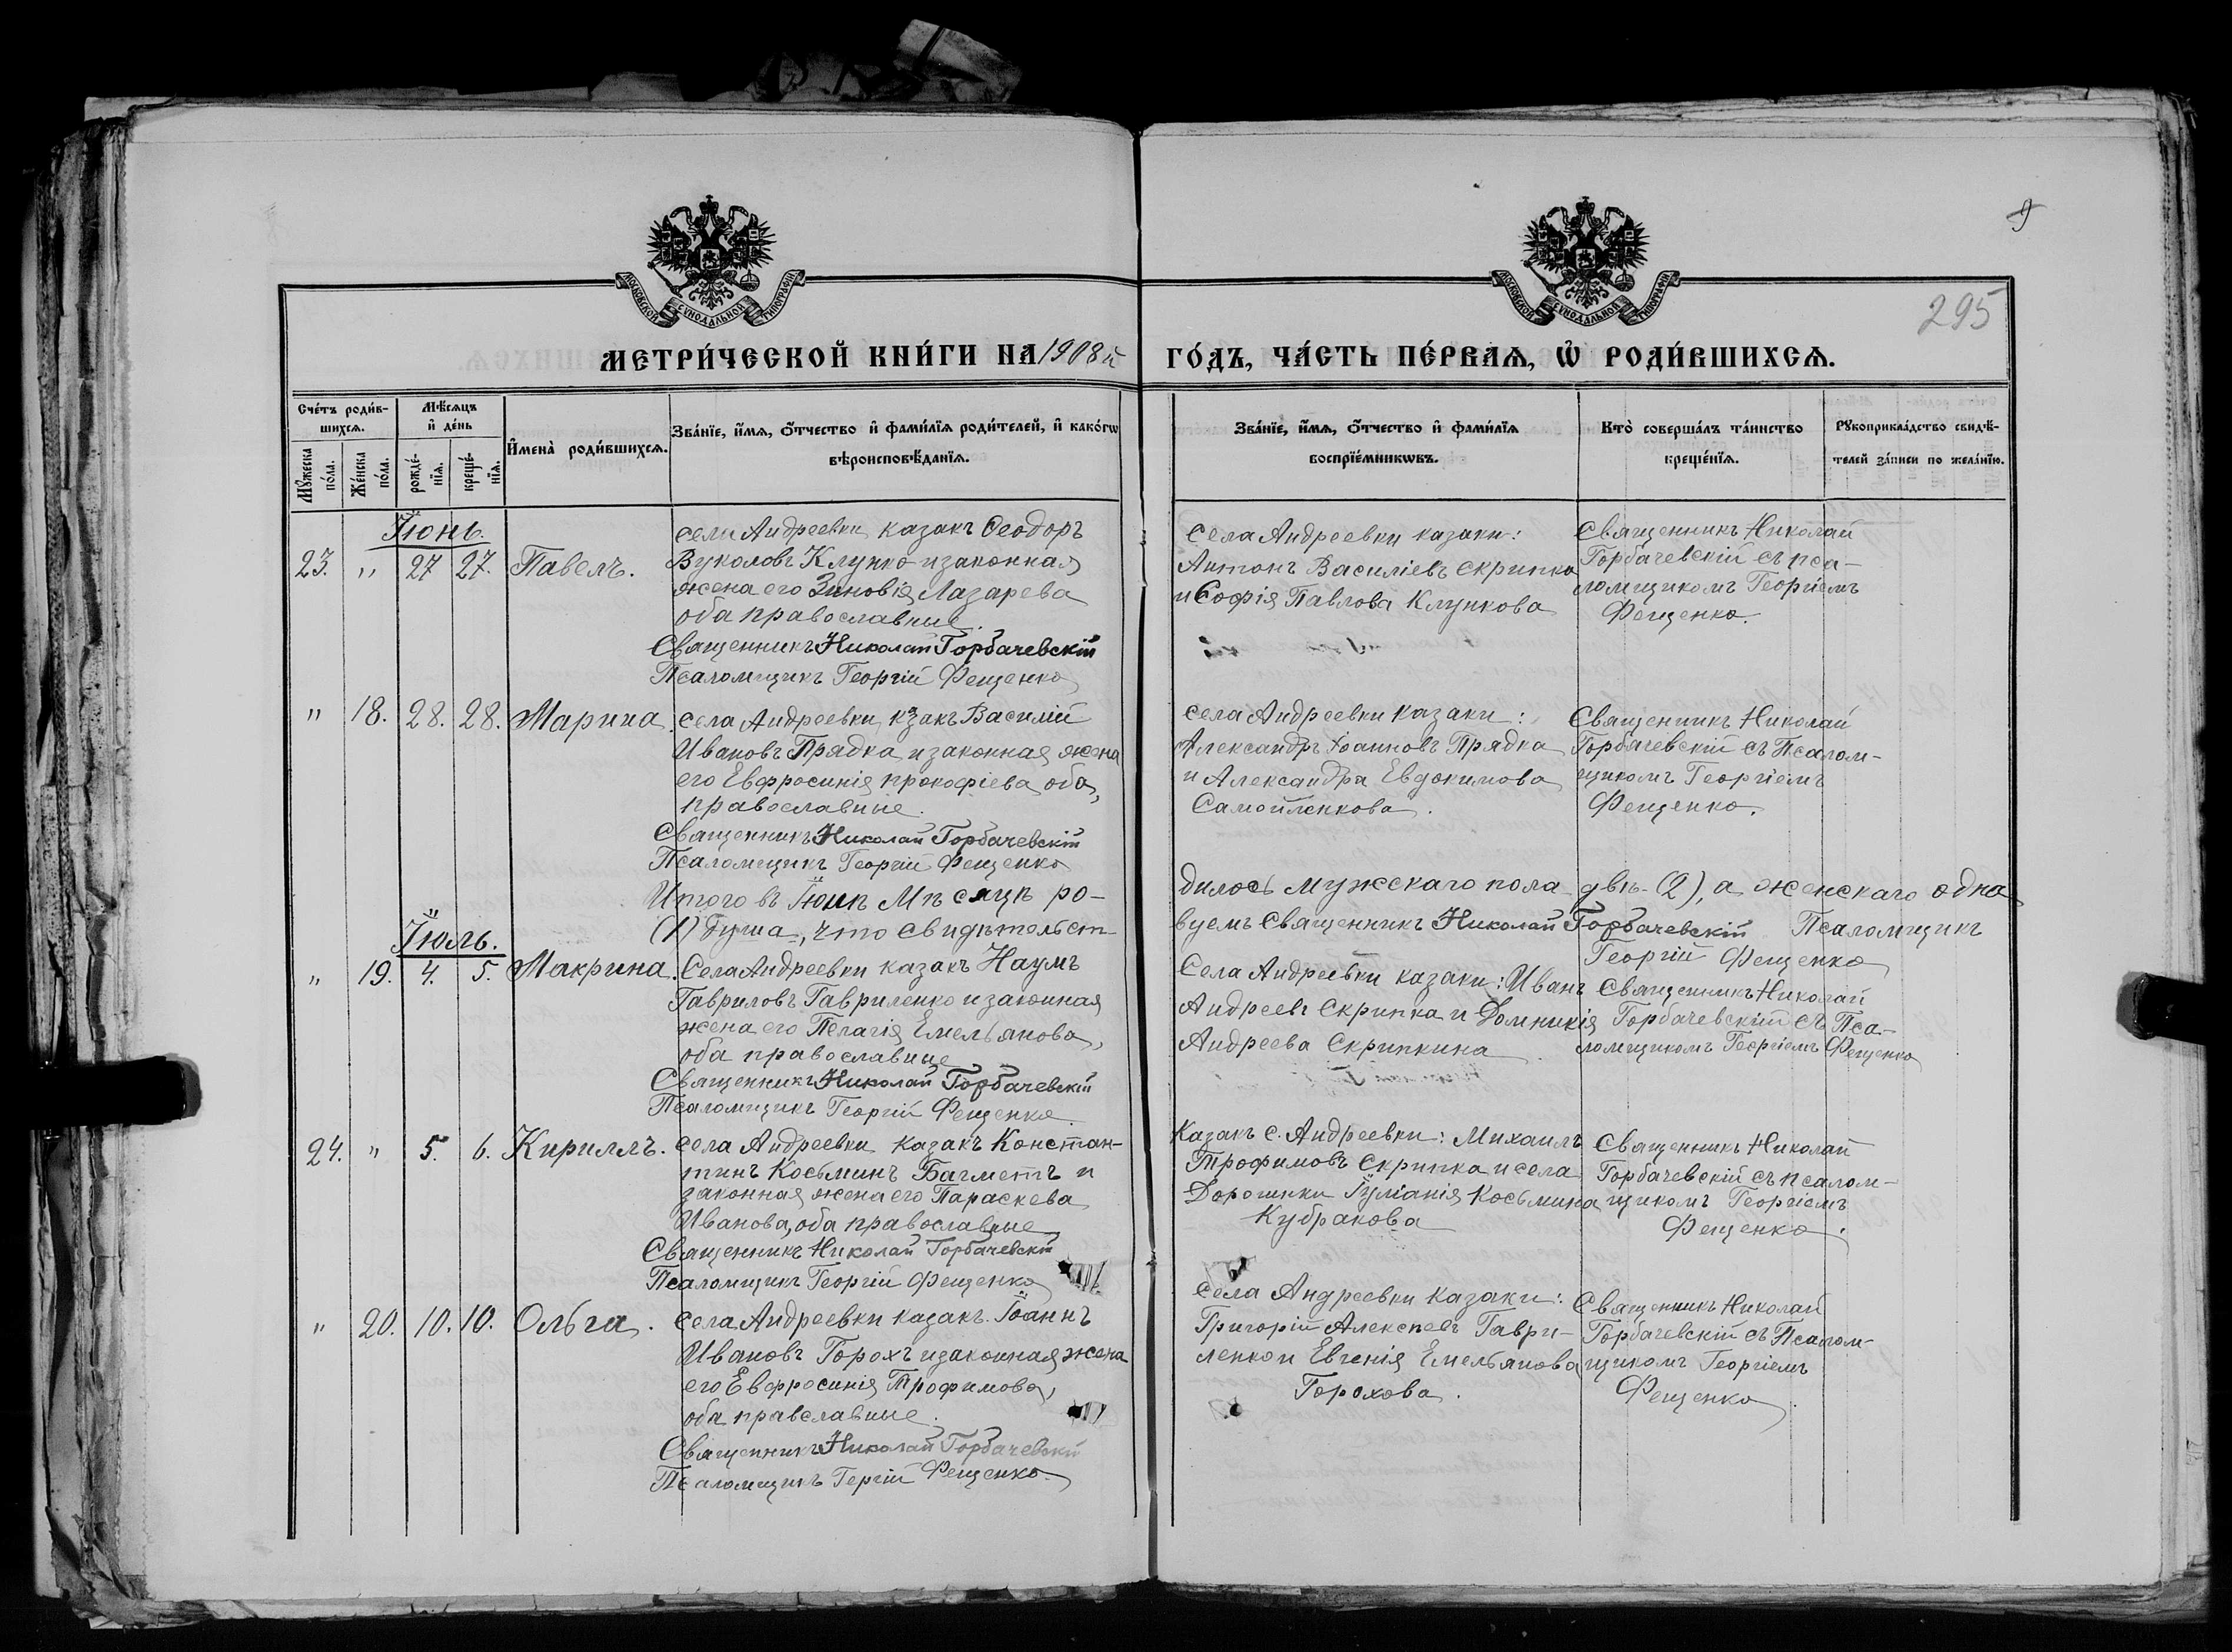 9
295
МОСКОВСКОЙ СѴНОДАЛЬНОЙ ТИПОГРАФІИ
МОСКОВСКОЙ СѴНОДАЛЬНОЙ ТИПОГРАФІИ
МЕТРИ́ЧЕСКОЙ КНИ́ГИ НА 1908й ГО́ДЪ, ЧА́СТЬ ПЕ́РВАѦ, Ѡ҆ РОДИ́ВШИХСѦ.
Сче́тъ роди́в-
шихсѧ.
Мꙋ́жеска по́ла.
Же́нска по́ла.
Мѣ́сѧцъ
и҆ де́нь
рожде́-
нїѧ.
креще́-
нїѧ.
И҆мена̀ роди́вшихсѧ.
Зва́нїе, и҆́мѧ, ѻ҆́тчество и҆ фами́лїѧ роди́телей, и҆ како́гѡ
вѣроисповѣ́данїѧ.
Зва́нїе, и҆́мѧ, ѻ҆́тчество и҆ фами́лїѧ
воспрїе́мникѡвъ.
Кто̀ соверша́лъ та́инство
креще́нїѧ.
Рꙋкоприкла́дство свидѣ́-
телей за́писи по жела́нїю.
Іюнь.
23. " 27 27. Павелъ.
села Андреевки казакъ Ѳеодоръ
Вуколовъ Клунко и законная
жена его Зиновія Лазарева
оба православные.
Священникъ Николай Горбачевскій
Псаломщикъ Георгій Фещенко
Села Андреевки казаки:
Антонъ Василіевъ Скрипка
и Софія Павлова Клункова
Священникъ Николай
Горбачевскій съ пса-
ломщикомъ Георгіемъ
Фещенко.
" 18. 28. 28. Марина
села Андреевки казакъ Василій
Ивановъ Прядка и законная жена
его Евфросинія Прокофіева, оба
православные.
Священникъ Николай Горбачевскій
Псаломщикъ Георгій Фещенко
села Андреевки казаки:
Александръ Іоанновъ Прядка
и Александра Евдокимова
Самойленкова.
Священникъ Николай
Горбачевскій съ Псалом-
щикомъ Георгіемъ
Фещенко.
Итого въ Іюнѣ Мѣсяцѣ ро-
дилось мужескаго пола двѣ (2), а женскаго одна
(1) душа, что свидѣтельст-
вуемъ Священникъ Николай Горбачевскій Псаломщикъ
Георгій Фещенко
Іюль.
" 19. 4. 5. Макрина.
Села Андреевки казакъ Наумъ
Гавриловъ Гавриленко и законная
жена его Пелагія Емельянова,
оба православные
Священникъ Николай Горбачевскій
Псаломщикъ Георгій Фещенко
Села Андреевки казаки: Иванъ
Андреевъ Скрипка и Домникія
Андреева Скрипкина
Священникъ Николай
Горбачевскій съ Пса-
ломщикомъ Георгіемъ Фещенко
24. " 5. 6. Кириллъ.
села Андреевки казакъ Констан-
тинъ Косьминъ Багметъ и
законная жена его Параскева
Иванова, оба православные
Священникъ Николай Горбачевскій
Псаломщикъ Георгій Фещенко
Казакъ с. Андреевки: Михаилъ
Трофимовъ Скрипка и села
Дорошки Іуліанія Косьмина
Кубракова
Священникъ Николай
Горбачевскій съ псалом-
щикомъ Георгіемъ
Фещенко.
" 20. 10. 10. Ольга.
села Андреевки казакъ Іоаннъ
Ивановъ Горохъ и законная жена
его Евфросинія Трофимова,
оба правславные.
Священникъ Николай Горбачевскій
Псаломщикъ Гергій Фещенко
села Андреевки казаки:
Григорій Алексѣевъ Гаври-
ленко и Евгенія Емельянова
Горохова.
Священникъ Николай
Горбачевскій съ Псалом-
щикомъ Георгіемъ
Фещенко.